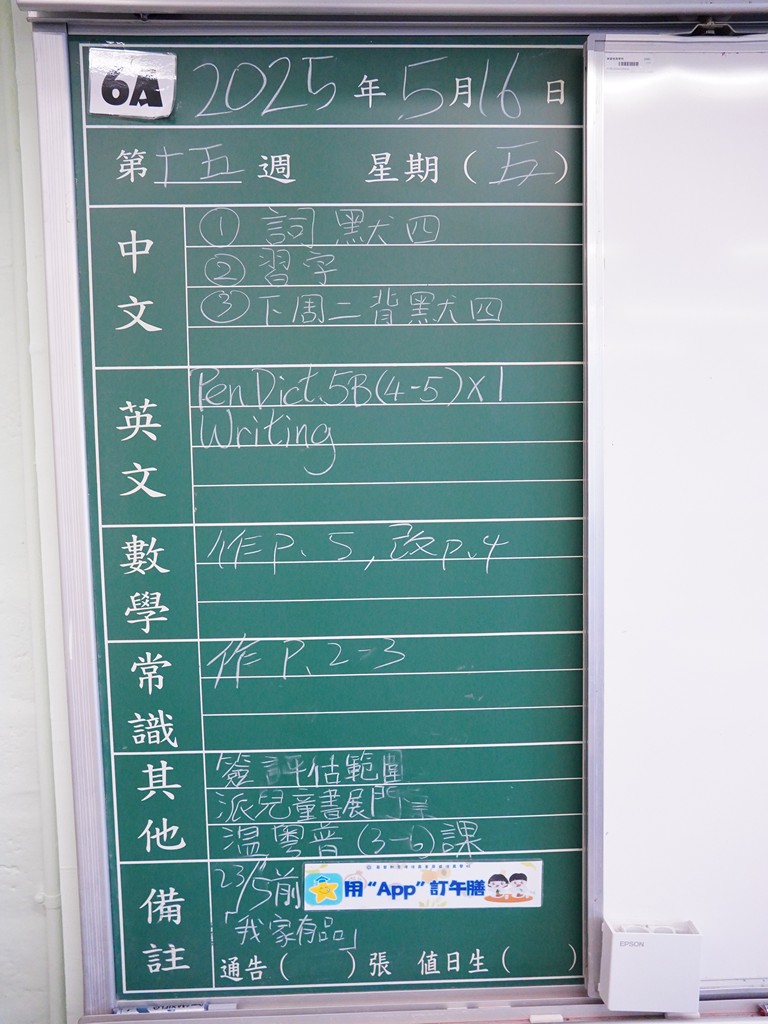 6A 2025年5月16日
第十五週 星期(五)
中文
①詞默四
②習字
③下周二背默四
英文
Pen Dict. 5B(4-5)x1
Writing
數學
作P.5,改p.4
常識
作P.2-3
其他
簽評估範圍
派兒童書展門
溫粵普(3-6)課
備註
23/5前
用“App”訂午膳
「我家有品」
通告( )張 值日生( )
EPSON